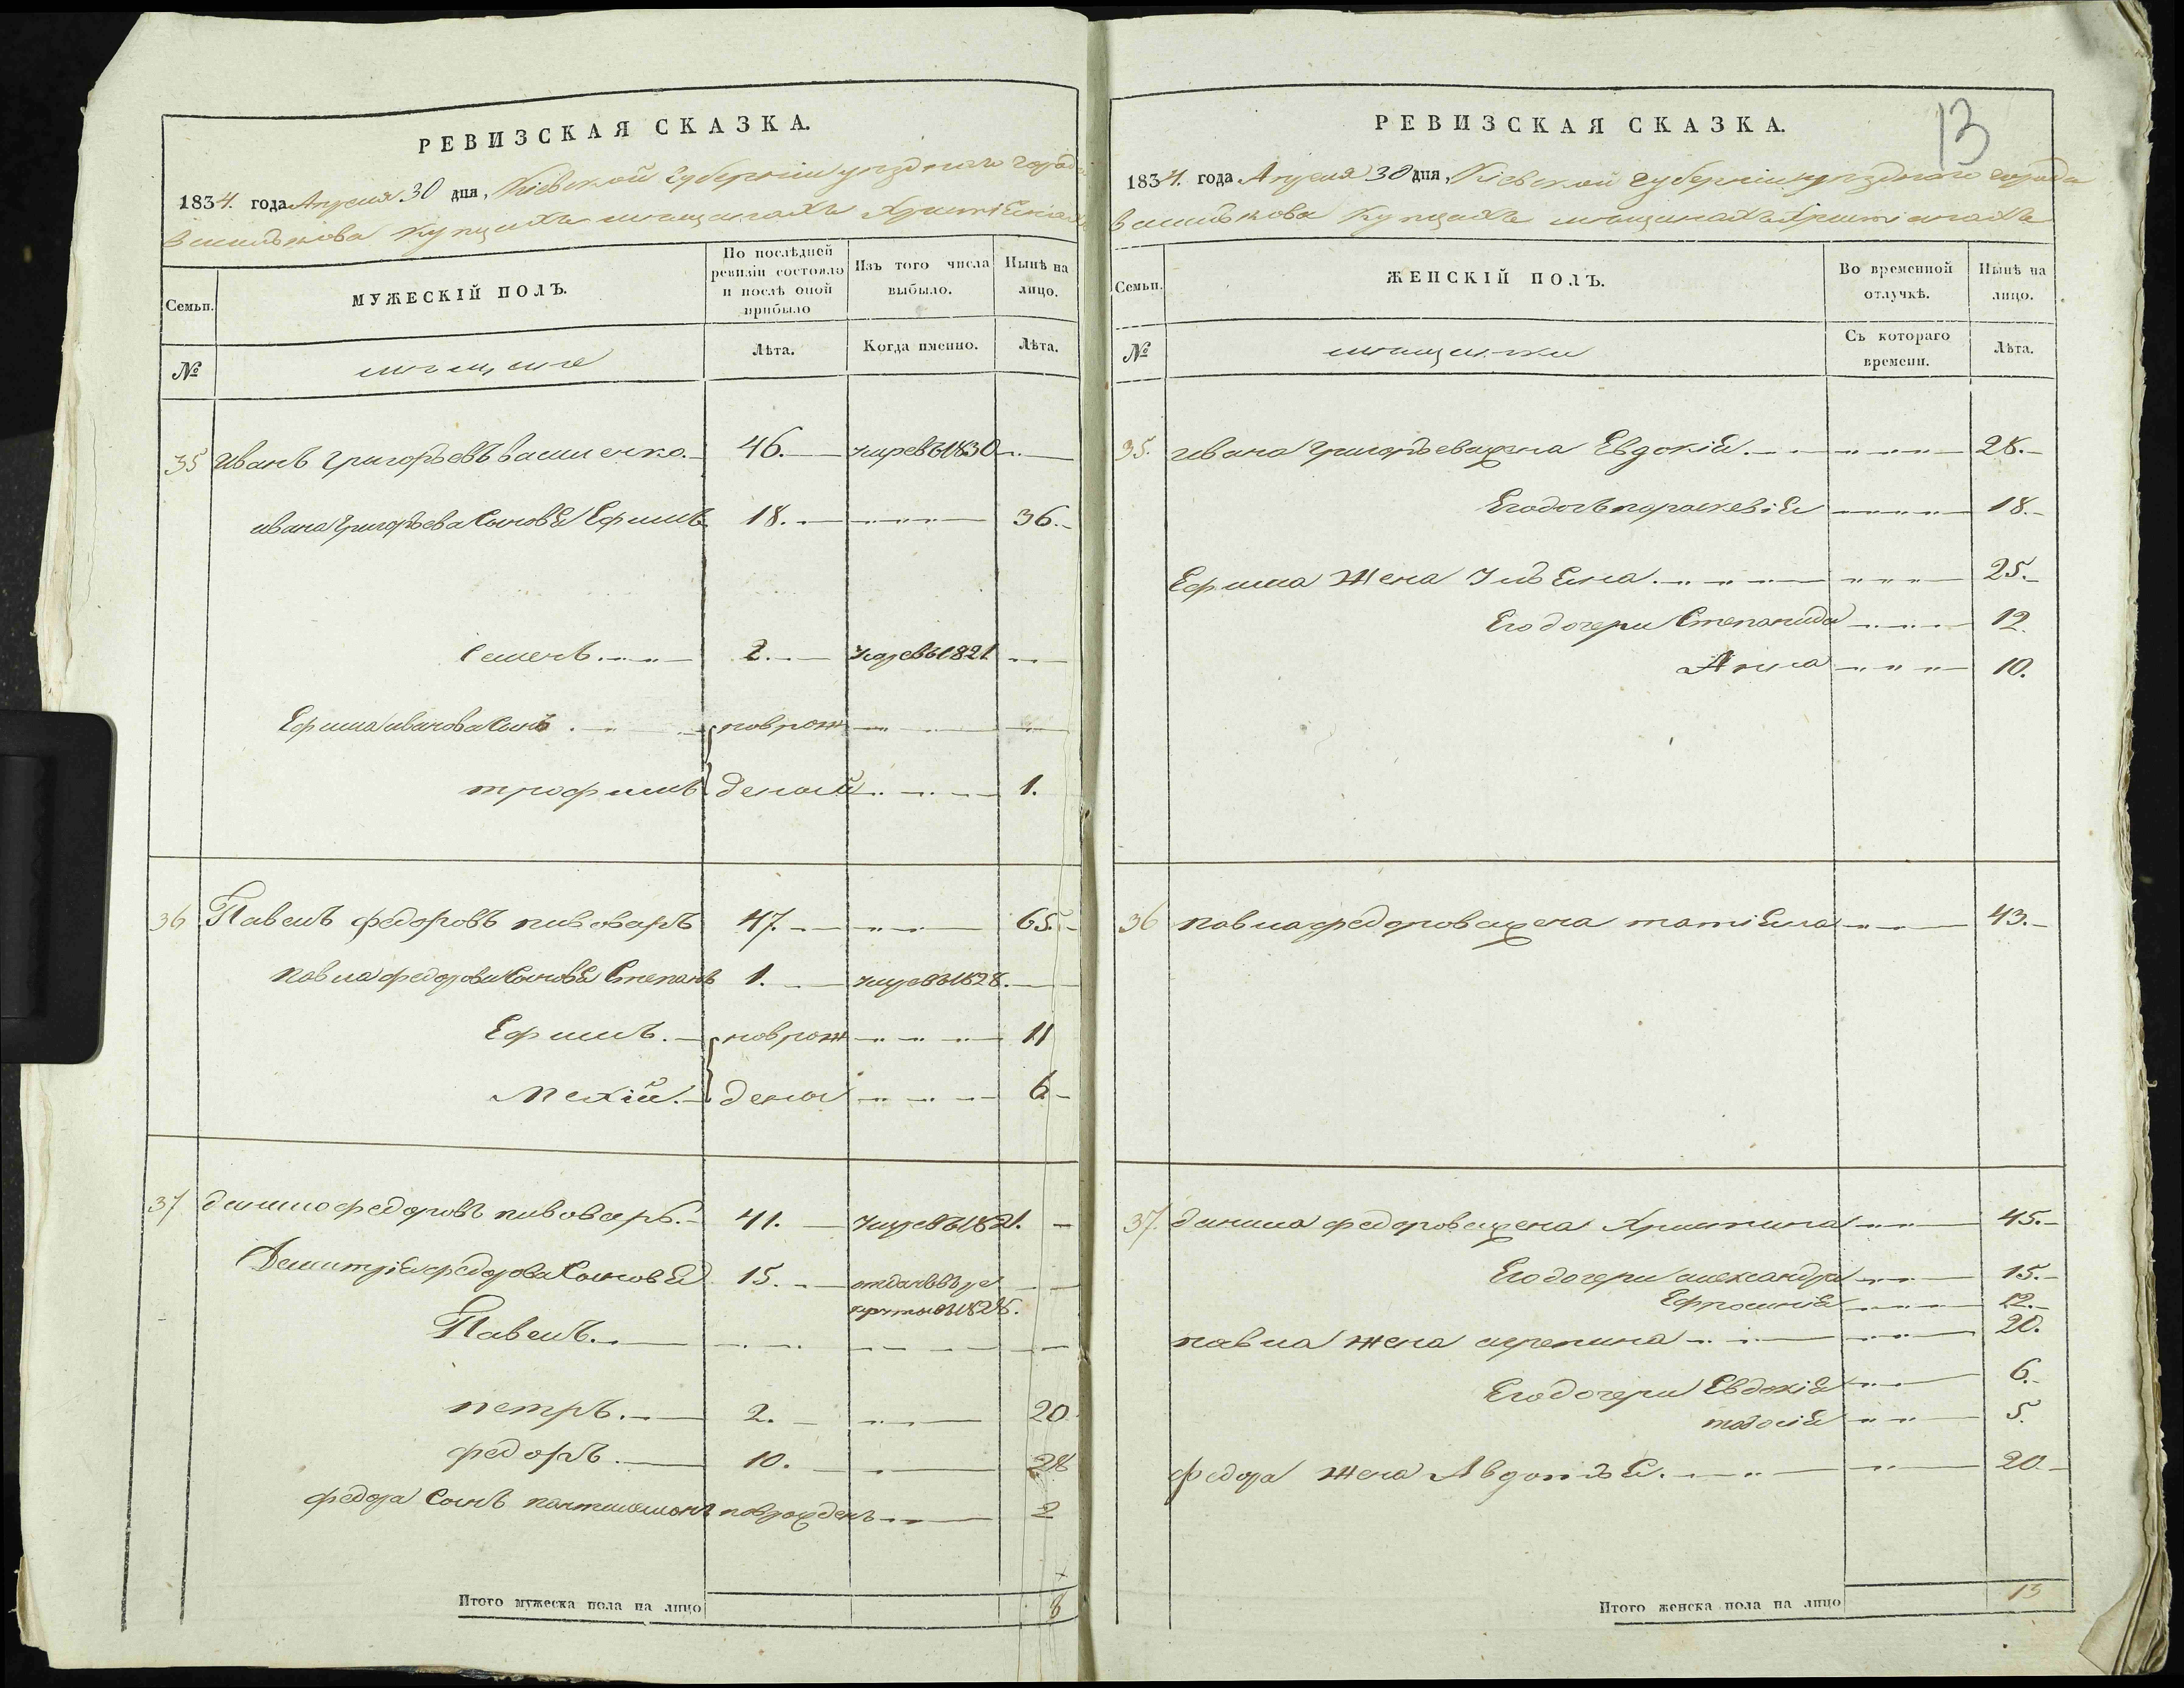 РЕВИЗСКАЯ СКАЗКА.
1834. года Апреля 30 дня, Кіевской Губерніи уезднаго города
Василькова Купцахъ мещанахъ Христіянахъ
Семьи.
МУЖЕСКІЙ ПОЛЪ.
По послѣдней ревизіи состояло и послѣ оной прибыло
Изъ того числа выбыло.
Нынѣ на лицо.
№
мещане
Лѣта.
Когда именно.
Лѣта.
35 Иванъ Григорьевъ Васи енко. 46. умревъ1830
ивана Григорьева Сыновья Ефимъ 18. 36.
Семенъ. 2. умревъ1821
Ефима иванова Сынъ новрож
трофимъ деный 1.
36 Павелъ федоровъ пивоваръ 47. 65.
павла федорова Сыновья Степанъ 1. умревъ1828.
Ефимъ. новрож 11
Мехій. дены 6
37 данило федоровъ пивоваръ. 41. умревъ1821.
Дмитрія федорова Сыновья 15. отданъвъре
круты въ1828.
Павелъ.
петръ. 2. 20
федоръ. 10. 28
федора Сынъ пантилимонъ новрожденъ 2
Итого мужеска пола на лицо 8
13
РЕВИЗСКАЯ СКАЗКА.
1834. года Апреля 30 дня, Кіевской Губерніи уезднаго города
Василькова Купцахъ мещанахъ Христіянахъ
Семьи.
ЖЕНСКІЙ ПОЛЪ.
Во временной отлучкѣ.
Нынѣ на лицо.
№
мещанки
Съ котораго времени.
Лѣта.
35. ивана Григорьева жена Евдокія. 28.
Его дочь параскевія 18.
Ефима Жена Ульяна. 25.
Его дочери Степанида 12.
Анна 10.
36 павла федорова жена татіяна 43.
37. данила федорова жена Христина 45.
Его дочери александра 15.
Ефросинія 12.
павла жена агрепина 20.
Его дочери Евдокія 6.
5.
федора жена Авдотья. 20.
Итого женска пола на лицо 13